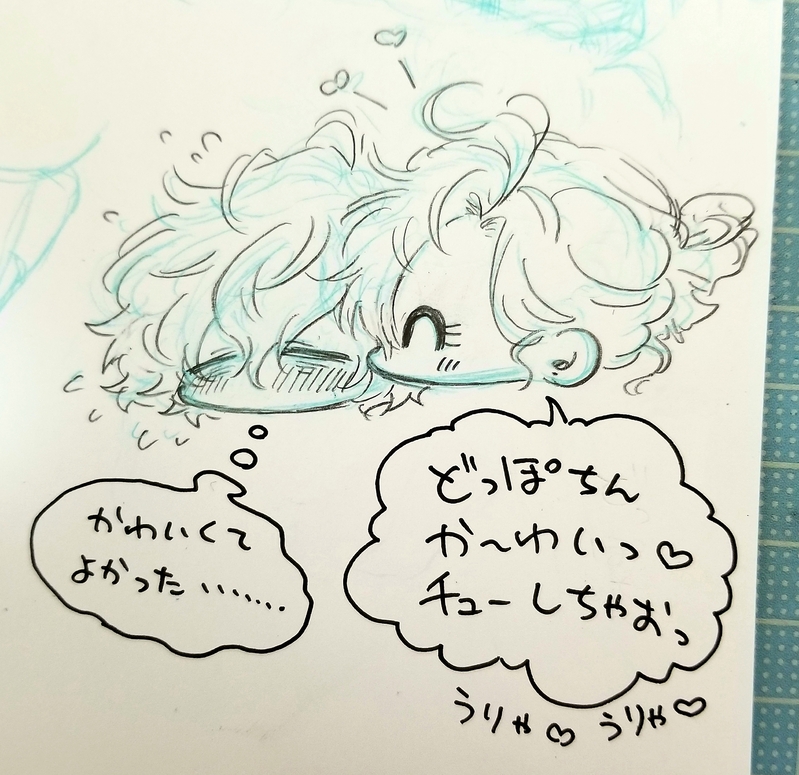 どっぽちん
か〜わいっ♡
チューしちゃおっ
うりゃ♡ うりゃ♡
かわいくて
よかった.......